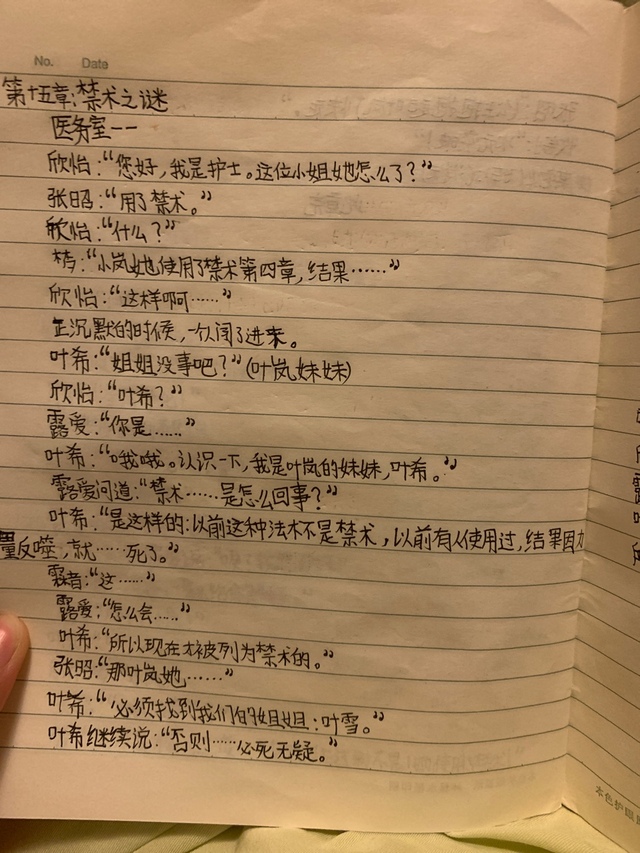 No. Date
第十五章:禁术之谜
医务室——
欣怡:“您好,我是护士。这位小姐她怎么了?”
张昭:“用了禁术。”
欣怡:“什么?”
梣:“小岚她使用了禁术第四章,结果……”
欣怡:“这样啊……”
正沉默的时候,一人闯了进来。
叶希:“姐姐没事吧?”(叶岚妹妹)
欣怡:“叶希?”
露爱:“你是……”
叶希:“哦哦。认识一下,我是叶岚的妹妹,叶希。”
露爱问道:“禁术……是怎么回事?”
叶希:“是这样的:以前这种法术不是禁术,以前有人使用过,结果因力
量反噬,就……死了。”
:“这……”
露爱:“怎么会……”
叶希:“所以现在才被列为禁术的。”
张昭:“那叶岚她……”
叶希:“必须找到我们的姐姐:叶雪。”
叶希继续说:“否则……必死无疑。”
本色护眼